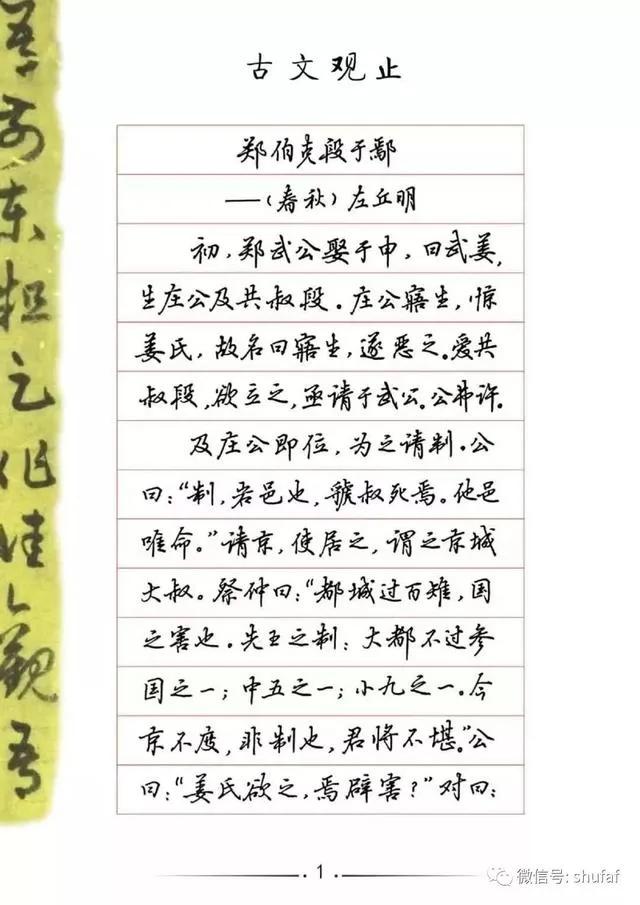 古文观止
郑伯克段于鄢
——（春秋）左丘明
初，郑武公娶于申，曰武姜，
生庄公及共叔段。庄公寤生，惊
姜氏，故名曰寤生，遂恶之。爱共
叔段，欲立之，亟请于武公。公弗许。
及庄公即位，为之请制。公
曰：“制，岩邑也，虢叔死焉。他邑
唯命。”请京，使居之，谓之京城
大叔。祭仲曰：“都城过百雉，国
之害也。先王之制：大都不过参
国之一；中五之一；小九之一。今
京不度，非制也，君将不堪。”公
曰：“姜氏欲之，焉辟害？”对曰：
1
微信号: shufaf